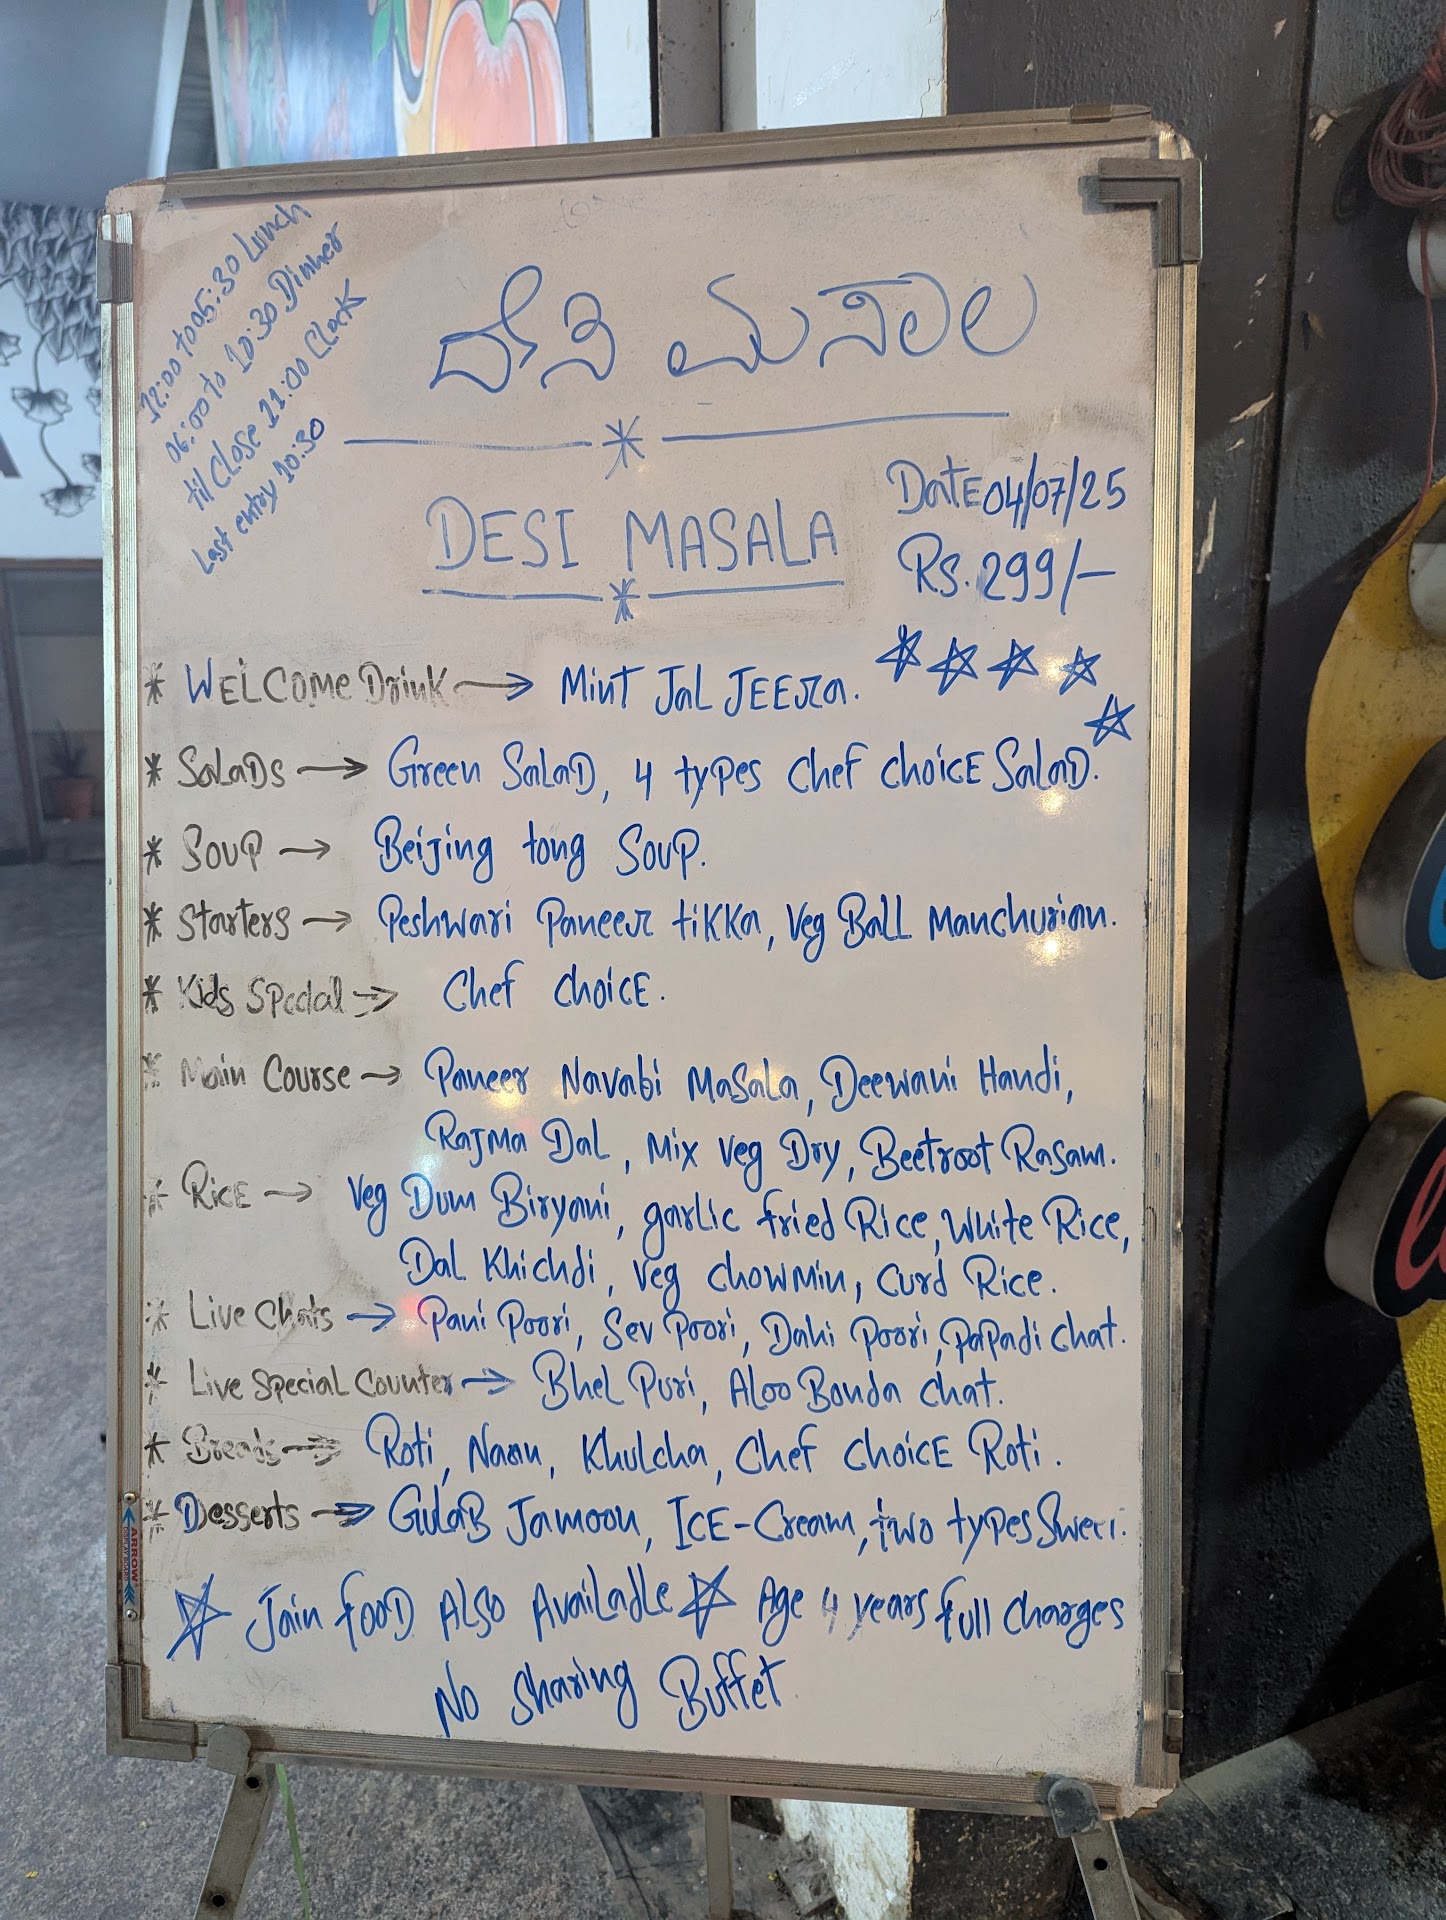 12:00 to 05:30 Lunch
06:00 to 10:30 Dinner
til Close 11:00 Clock
Last entry 10:30
ದೇಸಿ ಮಸಾಲ
DESI MASALA
Date 04/07/25
Rs. 299/-
* WELCOME Drink → Mint Jal JEEra.
* SalaDs → Green SalaD, 4 types Chef choicE SalaD.
* Soup → Beijing tong Soup.
* Starters → Peshwari Paneer tikka, Veg Ball Manchurian.
* Kids Special → Chef choicE.
* Main Course → Paneer Navabi Masala, Deewani Handi,
Rajma Dal, Mix veg Dry, Beetroot Rasam.
* RicE → Veg Dum Biryani, garlic fried Rice, White Rice,
Dal Khichdi, veg chowmin, Curd Rice.
* Live Chats → Pani Poori, Sev Poori, Dahi Poori, Papadi chat.
* Live special Counter → Bhel Puri, Aloo Bonda chat.
* Breads → Roti, Naan, Khulcha, Chef choicE Roti.
* Desserts → Gulab Jamoon, IcE-Cream, two types Sweet.
☆ Jain fooD Also Available ☆ Age 4 years full charges
No sharing Buffet
ARROW